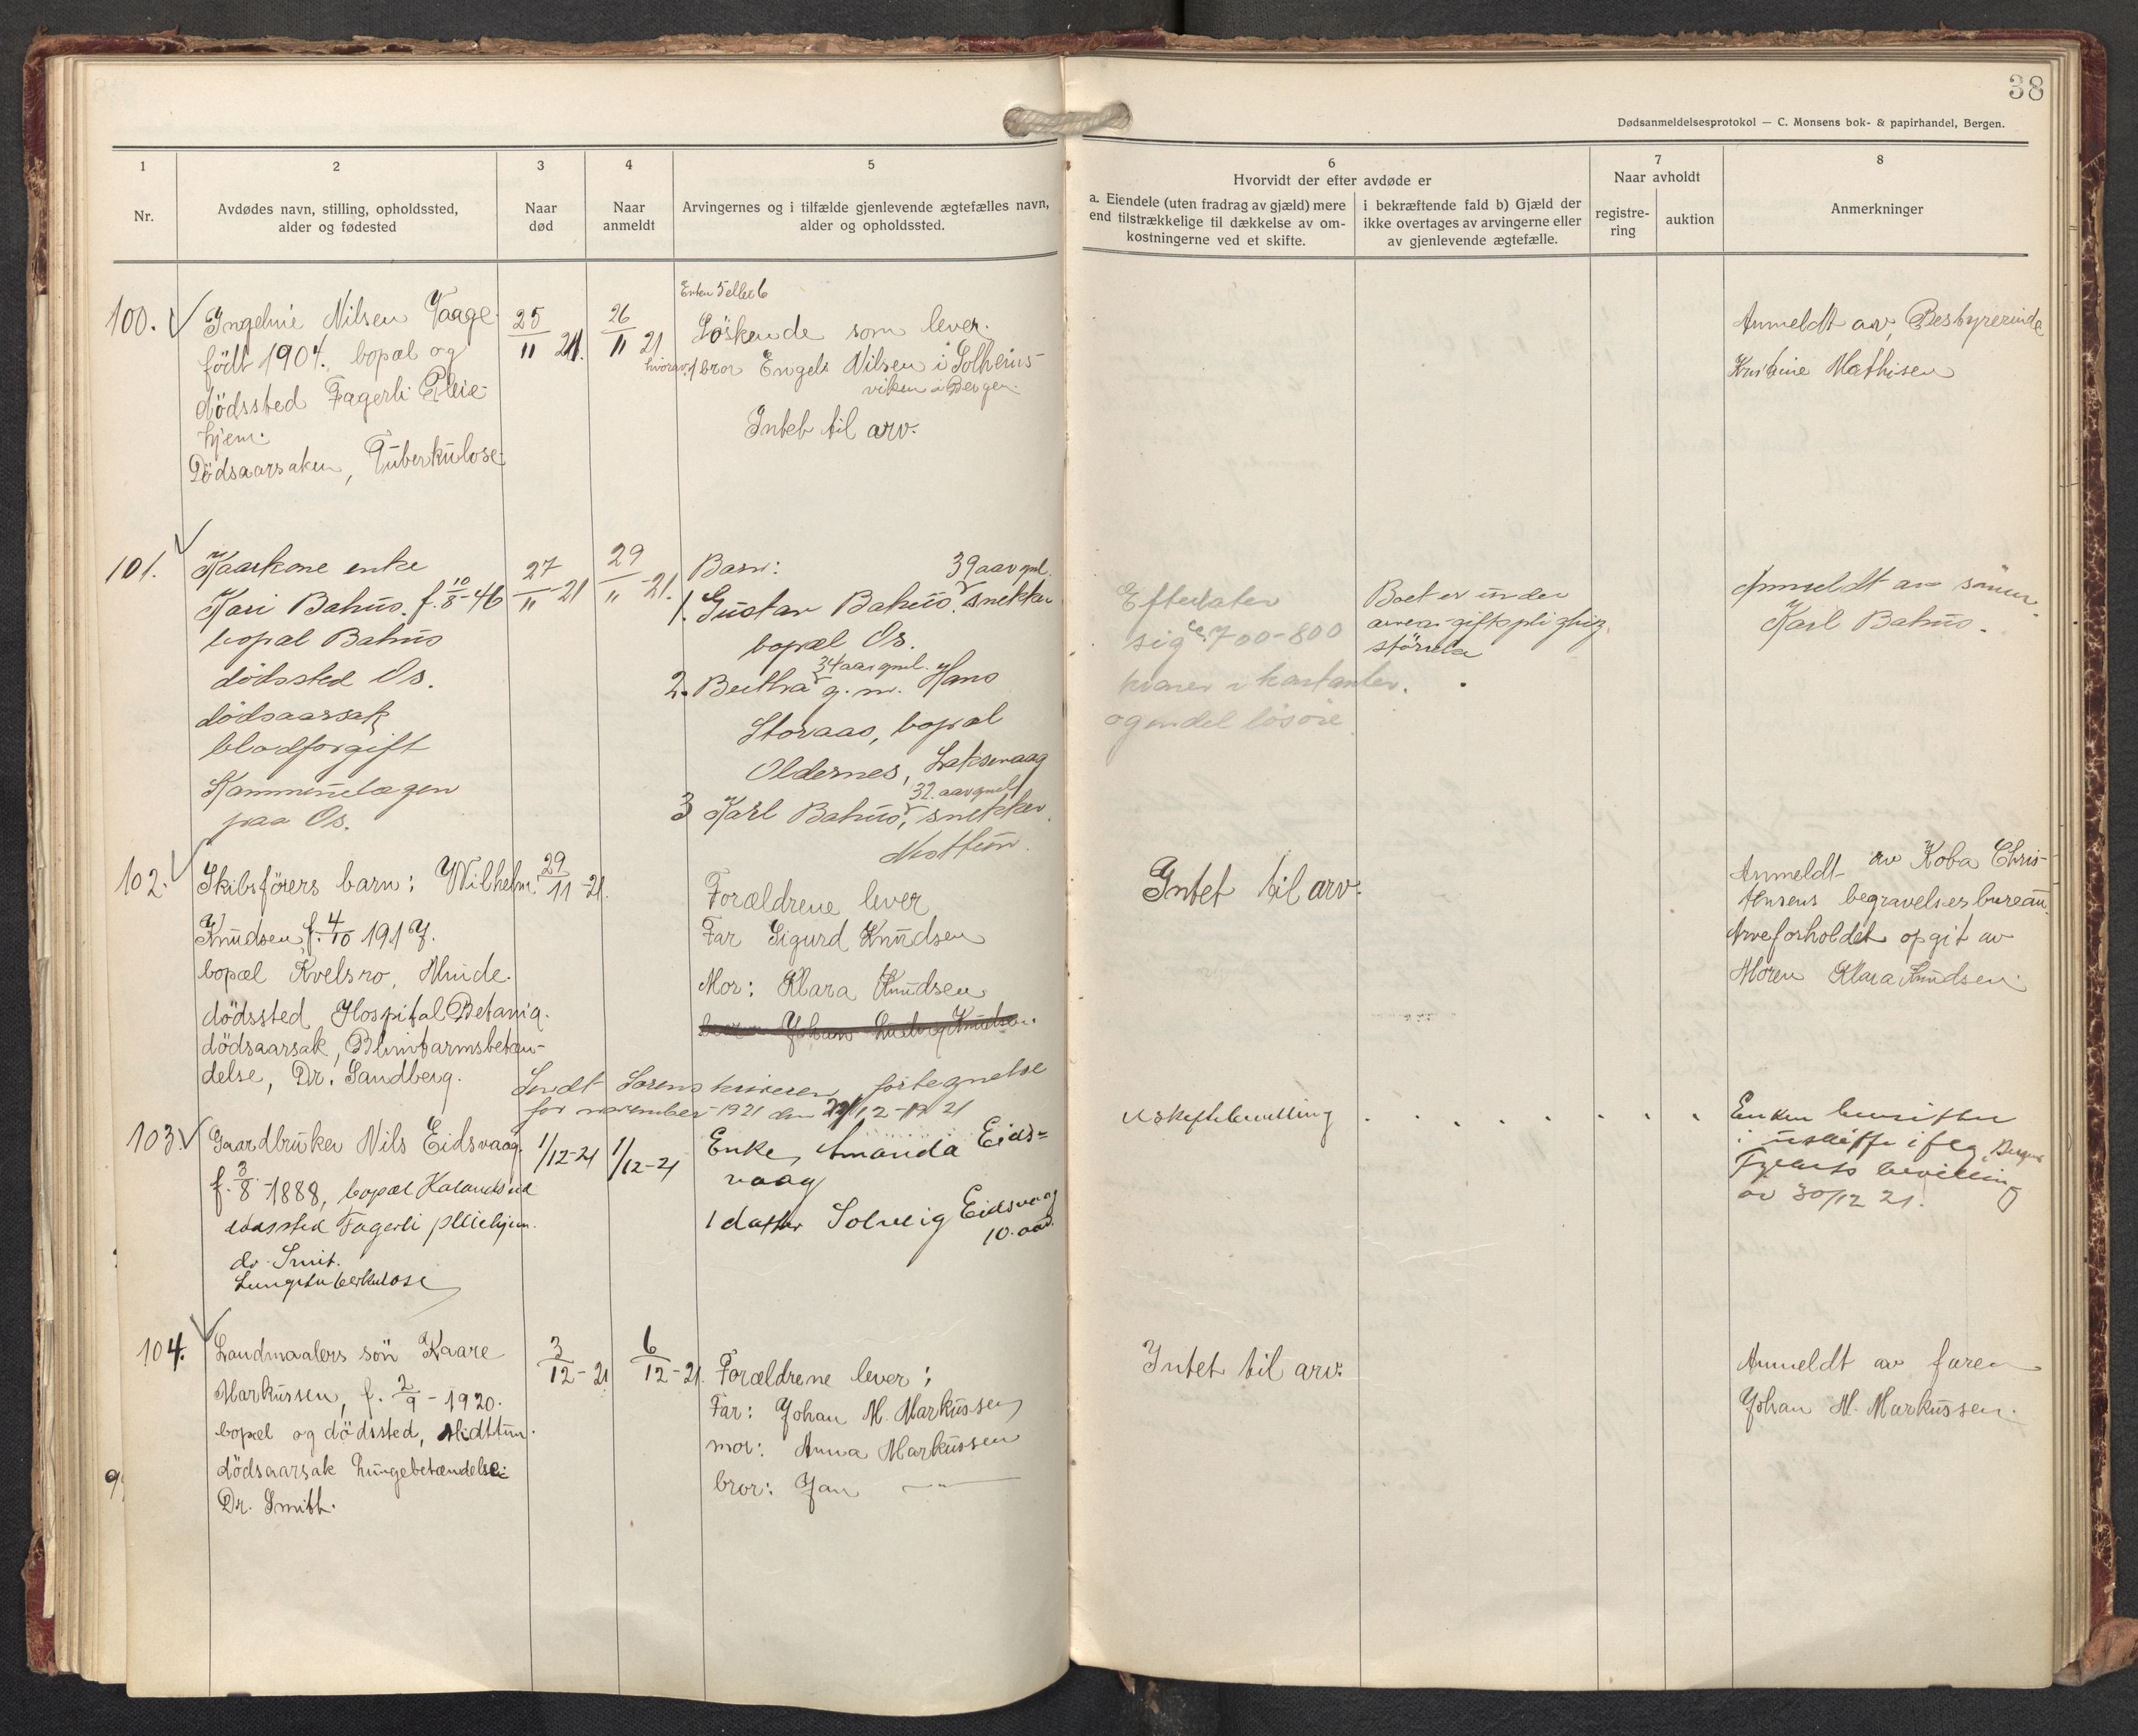 38
Dødsanmeldelsesprotokol — C. Monsens bok- & papirhandel, Bergen.
1
2
3
4
5
6
7
8
Nr.
Avdødes navn, stilling, opholdssted,
alder og fødested
Naar
død
Naar
anmeldt
Arvingernes og i tilfælde gjenlevende ægtefælles navn,
alder og opholdssted.
Hvorvidt der efter avdøde er
a. Eiendele (uten fradrag av gjæld) mere
end tilstrækkelige til dækkelse av om-
kostningerne ved et skifte.
i bekræftende fald b) Gjæld der
ikke overtages av arvingerne eller
av gjenlevende ægtefælle.
Naar avholdt
registre-
ring
auktion
Anmerkninger
100.
Ingeline Nilsen Vaage
født 1904. bopæl og
dödssted Fagerli Pleie-
hjem.
Dödsaarsaken, Tuberkulose
25/11 21.
26/11 21
Enten 5 eller 6
Söskende som lever.
hvorav 1 bror Engels Nilsen i Solheims-
viken i Bergen.
Intet til arv.
Anmeldt av, Bestyrerinde
Kristine Mathisen
101.
Kaarkone enke
Kari Bahus. f. 10/8-46
bopæl Bahus
dödssted Os.
dödsaarsak
blodforgift
Kommunelægen
paa Os.
27/11 21
29/11 -21.
Barn: 39 aar gml.
1. Gustav Bahus, snekker
bopæl Os.
34 aar gml.
2. Bertha g. m. Hans
Storaas, bopæl
Oldernes, Laksevaag
32. aar gml
3 Karl Bahus, snekker.
Nesttun.
Efterlater
sig ca. 700-800
kroner i kontanter.
og en del løsøre
Boet er under
arveavgiftspligtig
størrelse
Anmeldt av sønn.
Karl Bahus.
102.
Skibsförers barn: Wilhelm
Knudsen, f. 4/10 1917.
bopæl Kvelsro, Minde.
dödssted, Hospital Betania.
dödsaarsak, Blindtarmsbetæn-
delse, Dr. Sandberg.
29/11 -21.
Forældrene lever
Far Sigurd Knudsen
Mor: Klara Knudsen
bror Johan Ludvig Knudsen.
Intet til arv.
Anmeldt av Koba Chris-
tensens begravelsesbureau.
Arveforholdet opgit av
Moren Klara Knudsen.
Sendt Sorenskriveren fortegnelse
for november 1921 den 12-1921
103.
Gaardbruker Nils Eidsvaag.
f. 3/8-1888, bopæl Kalandseid
dödssted Fagerli pleiehjem.
dr. Smit.
Lungetuberkulose
1/12-21
1/12-21
Enke, Amanda Eids=
vaag
1 datter Solveig Eidsvaag
10. aar.
Uskiftebevilling
Enken hensitter
i uskifte ifølg. Bergens
bevilling
av 30/12 21.
104.
Landmaalers sön Kaare
Markussen, f. 2/9 - 1920.
bopæl og dödssted, Midttun.
dödsaarsak Lungebetændelse:
Dr. Smith.
3/12-21
6/12-21.
Forældrene lever;
Far: Johan M. Markussen
mor: Anna Markussen
bror: Jan — " —
Intet til arv.
Anmeldt av faren
Johan M. Markussen.